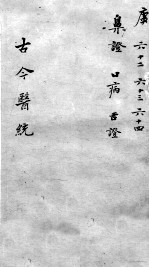 庚 六十二 六十三 六十四
鼻證 口病 舌證
古今醫統